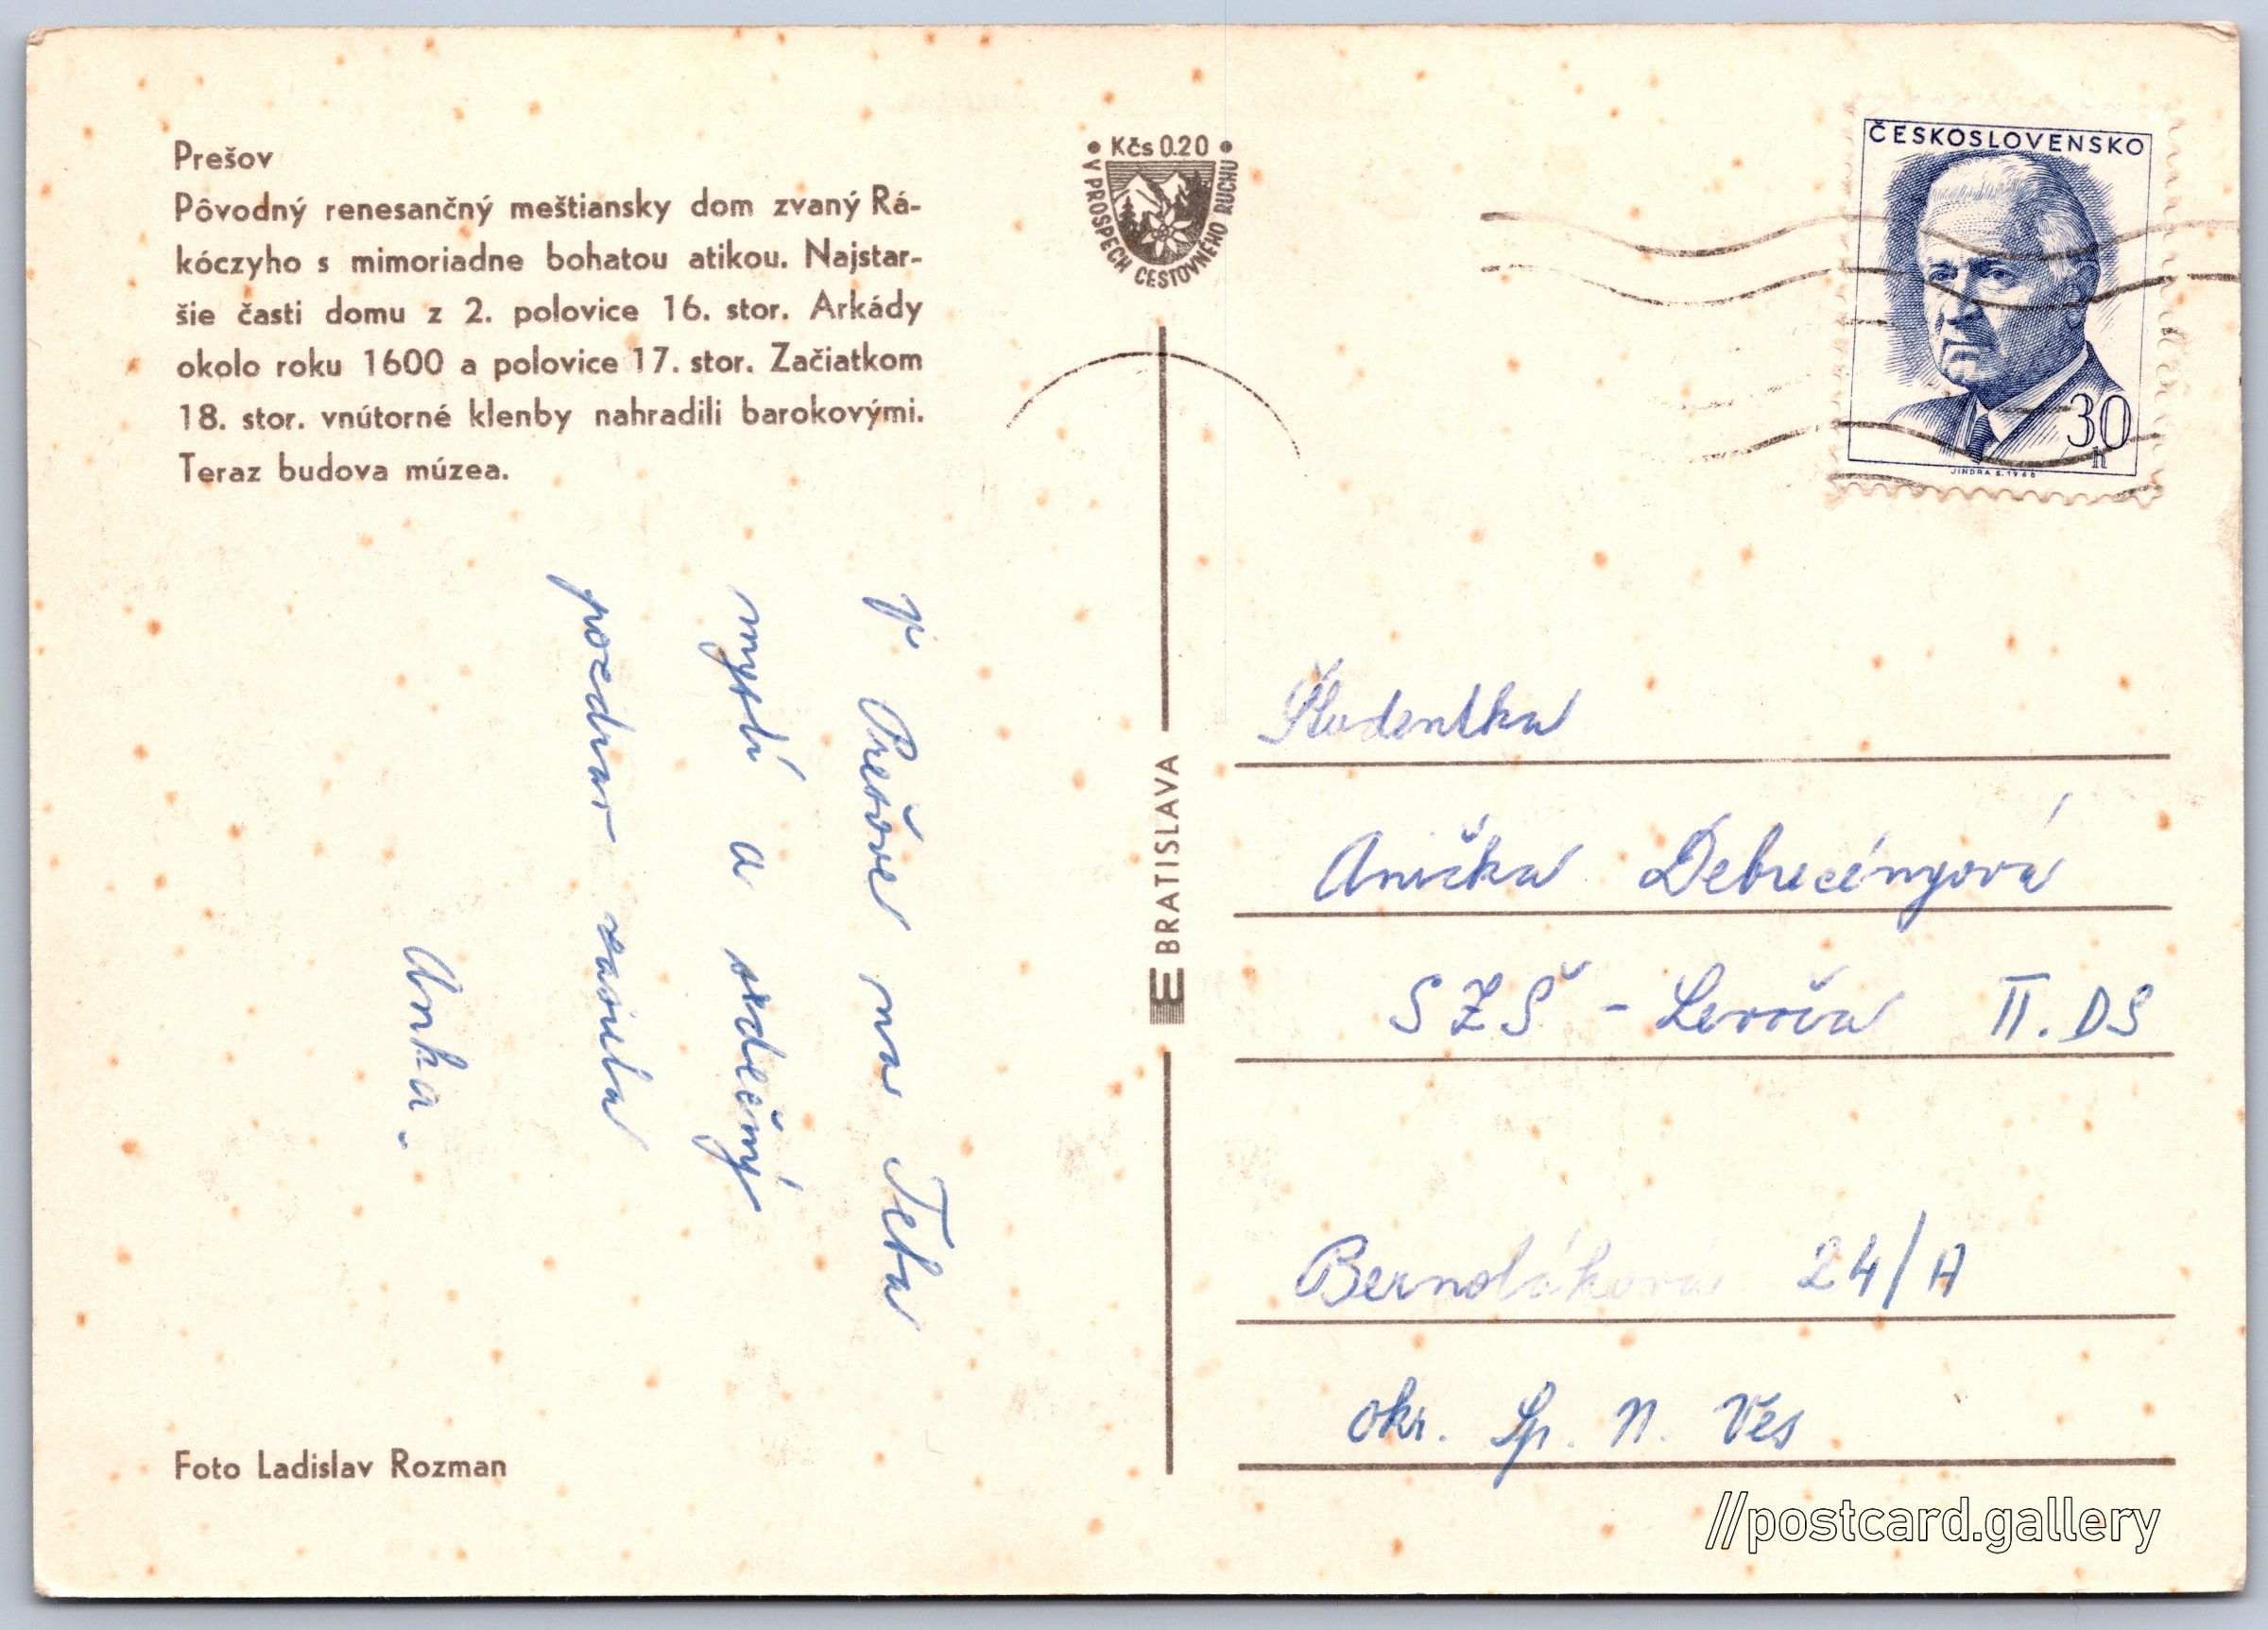 Prešov
Pôvodný renesančný meštiansky dom zvaný Rá-
kóczyho s mimoriadne bohatou atikou. Najstar-
šie časti domu z 2. polovice 16. stor. Arkády
okolo roku 1600 a polovice 17. stor. Začiatkom
18. stor. vnútorné klenby nahradili barokovými.
Teraz budova múzea.
V Prešove na Teba
myslí a srdečný
pozdrav zasiela
Anka.
Foto Ladislav Rozman
• Kčs 0.20 •
V PROSPECH CESTOVNÉHO RUCHU
BRATISLAVA
ČESKOSLOVENSKO
30
h
JINDRA S. 1968
Študentka
Anička Debrecényová
SZŠ - Levoča II. DS
Bernolákova 24/A
okr. Sp. N. Ves
//postcard.gallery